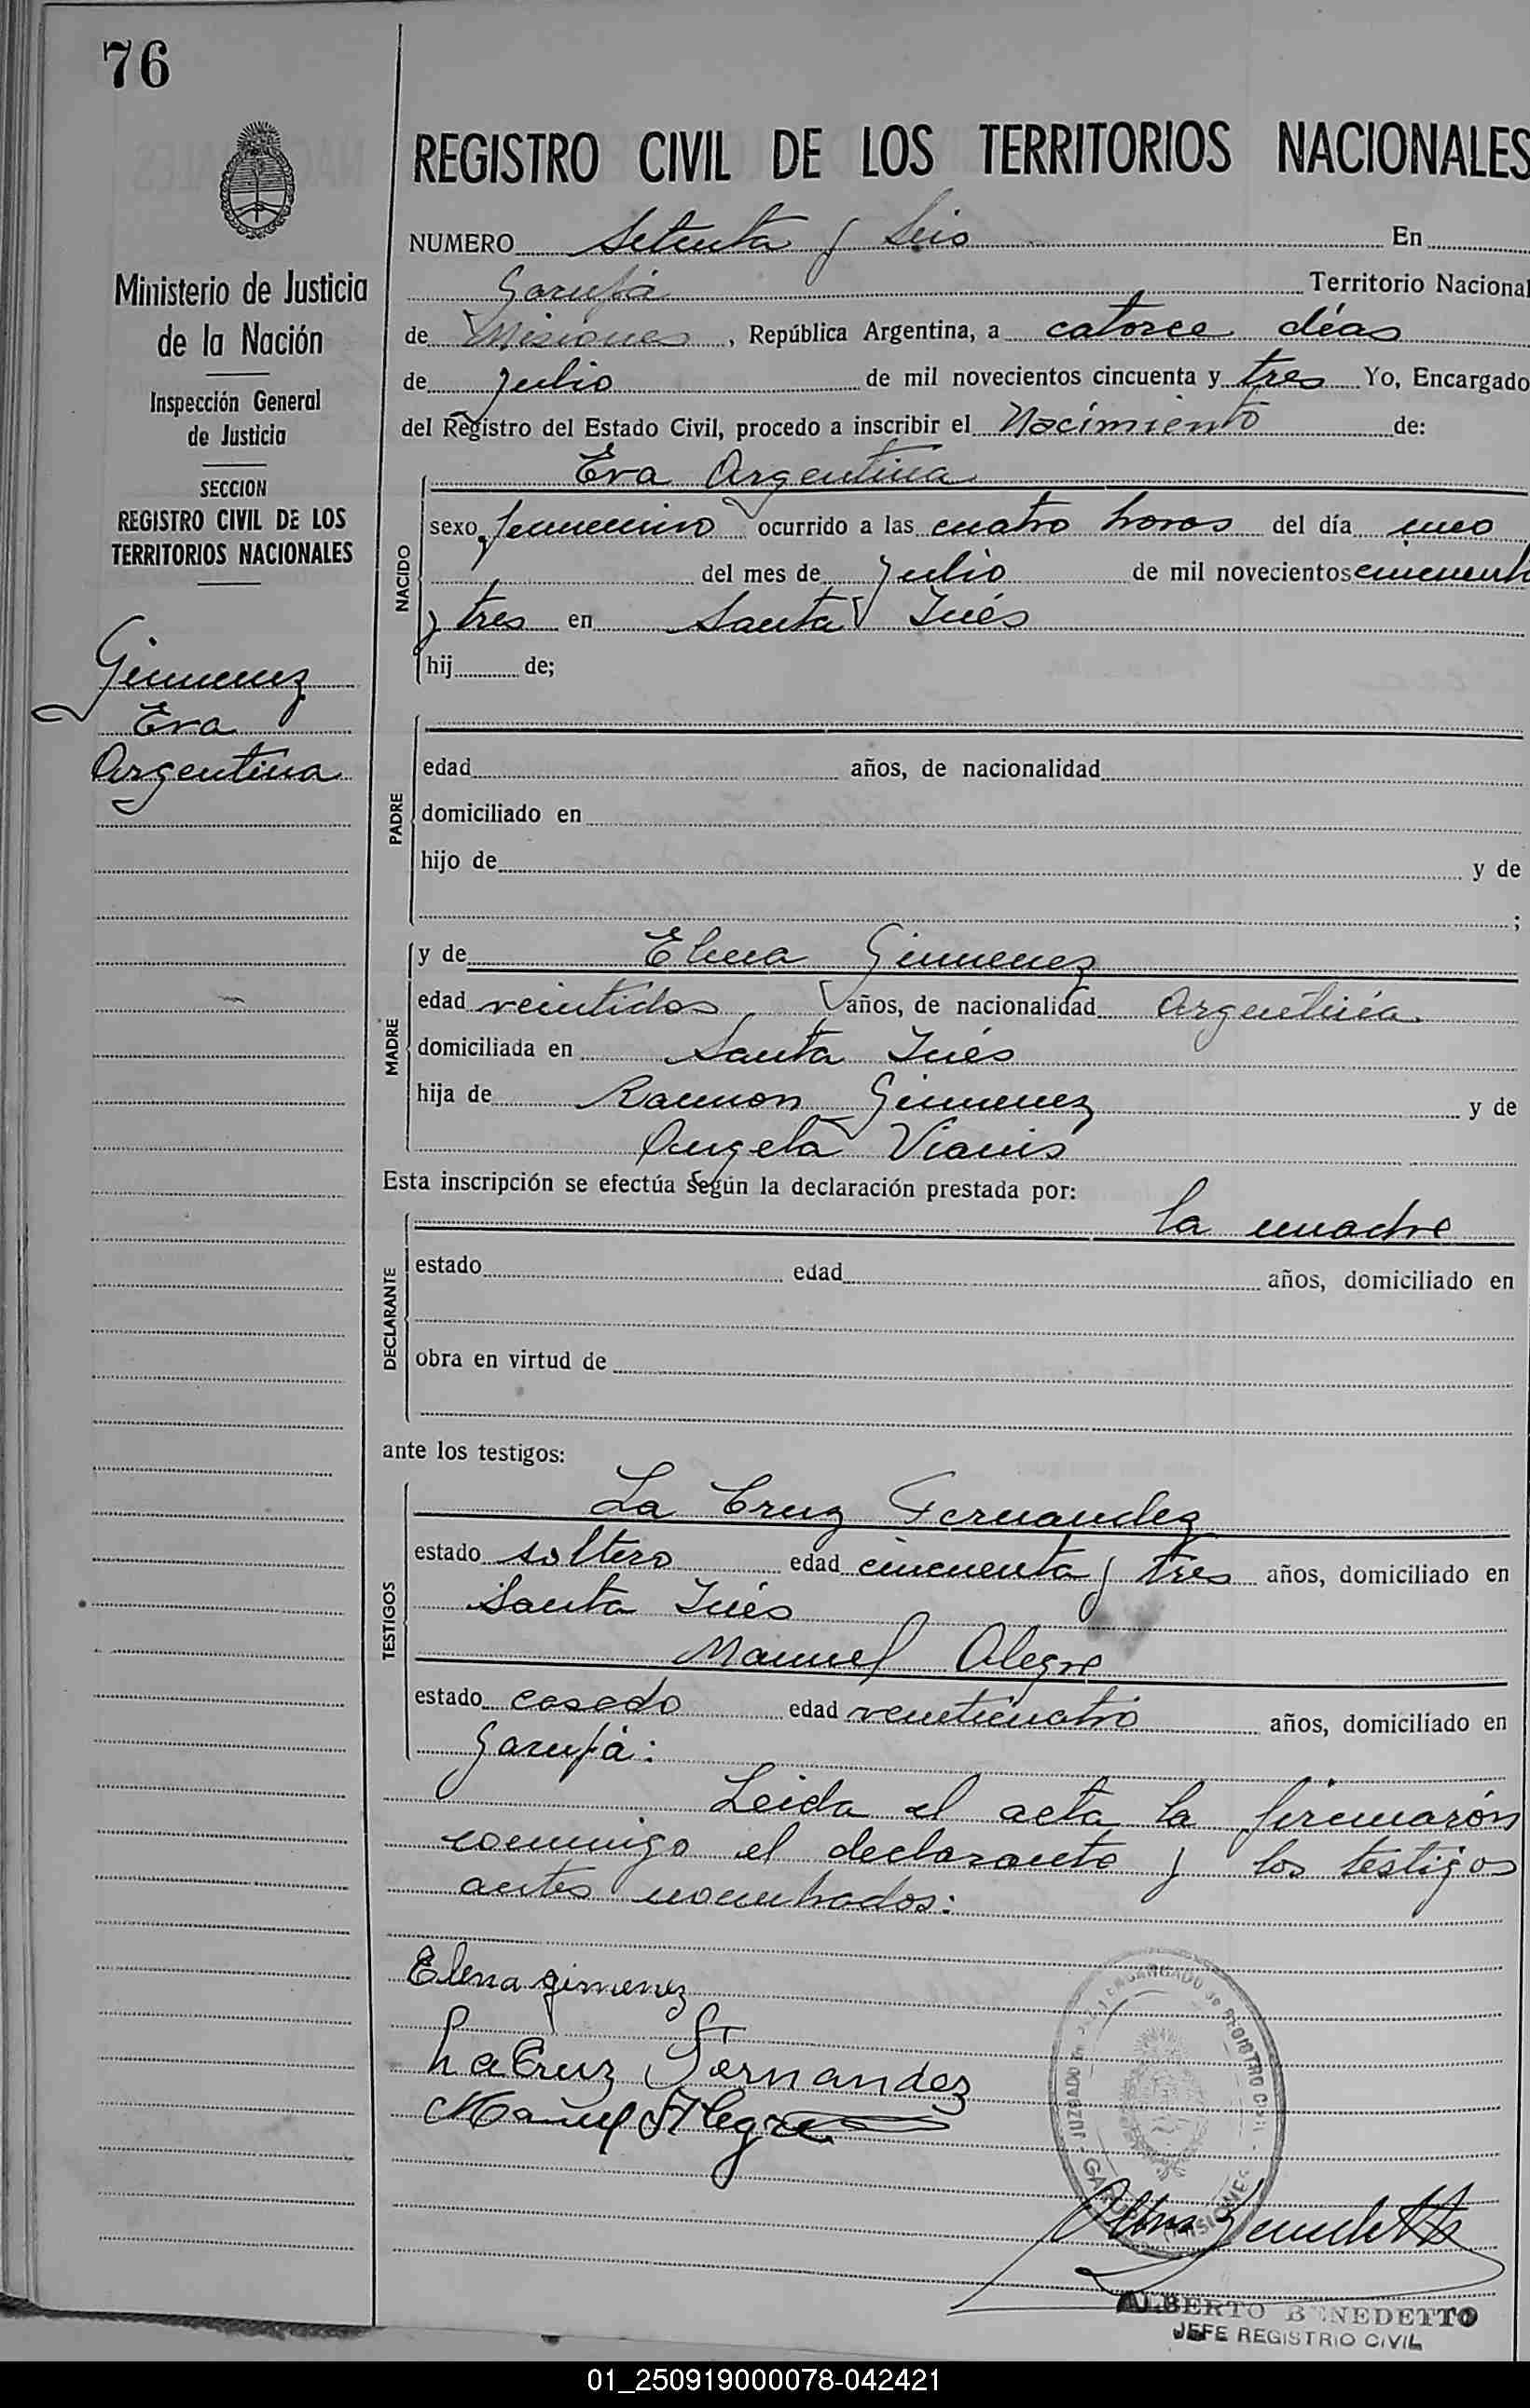 76
REGISTRO CIVIL DE LOS TERRITORIOS NACIONALES
NUMERO Setenta y Seis En
Garupá Territorio Nacional
de Misiones, República Argentina, a catorce días
de Julio de mil novecientos cincuenta y tres Yo, Encargado
del Registro del Estado Civil, procedo a inscribir el Nacimiento de:
Ministerio de Justicia
de la Nación
Inspección General
de Justicia
SECCION
REGISTRO CIVIL DE LOS
TERRITORIOS NACIONALES
Gimenez
Eva
Argentina
NACIDO
Eva Argentina
sexo femenino ocurrido a las cuatro horas del día uno
del mes de Julio de mil novecientos cincuenta
y tres en Santa Inés
hij de;
PADRE
edad años, de nacionalidad
domiciliado en
hijo de y de
;
MADRE
y de Elena Gimenez
edad veintidos años, de nacionalidad Argentina
domiciliada en Santa Inés
hija de Ramon Gimenez y de
Angela
Esta inscripción se efectúa según la declaración prestada por:
la madre
DECLARANTE
estado edad años, domiciliado en
obra en virtud de
ante los testigos:
TESTIGOS
La Cruz Fernandez
estado soltero edad cincuenta y tres años, domiciliado en
Santa Inés
Manuel Alegre
estado casado edad veinticuatro años, domiciliado en
Garupá:
Leida el acta la firmarón
conmigo el declarante y los testigos
antes nombrados:
Elena gimenez
La Cruz Fernandez
Manuel Alegre
JUZGADO DE PAZ Y ENCARGADO de REGISTRO CIVIL
GARUPA (MISIONES)
ALBERTO BENEDETTO
JEFE REGISTRIO CIVIL
01_250919000078-042421